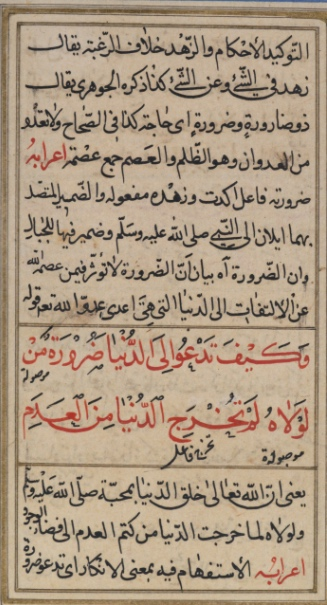 التوكيد الاحكام والزهد خلاف الرغبة يقال
زهد في الشئ وعن الشئ كذا ذكره الجوهري يقال
ذو ضارورة وضرورة اى حاجة كذا في الصحاح ولا تعدو
من العدوان وهو الظلم والعصم جمع عصمة اعرابه
ضرورته فاعل اكدت وزهده مفعوله والضمير المتصل
بهما ايلان الى النبي صلى الله عليه وسلم وضمير فيها للجبال
وان الضرورة آه بيان ان الضرورة لا تؤثر فيمن عصمه الله
عن الالتفات الى الدنيا التى هى اعدى عدو الله تعه قوله
وَكَيْفَ تَدْعُو اِلَى الدُّنْيَا ضَرُورَةُ مَنْ
موصولة
لَوْلَاهُ لَمْ تُخْرَجِ الدُّنْيَا مِنَ الْعَدَمِ
موصولة
يعنى ان الله تعالى خلق الدنيا بمحبة صلى الله عليه وسلم
ولولاه لما خرجت الدنيا من كتم العدم الى فضاء الوجود
اعرابه الاستفهام فيه بمعنى الانكار اى تدعو ضرورة